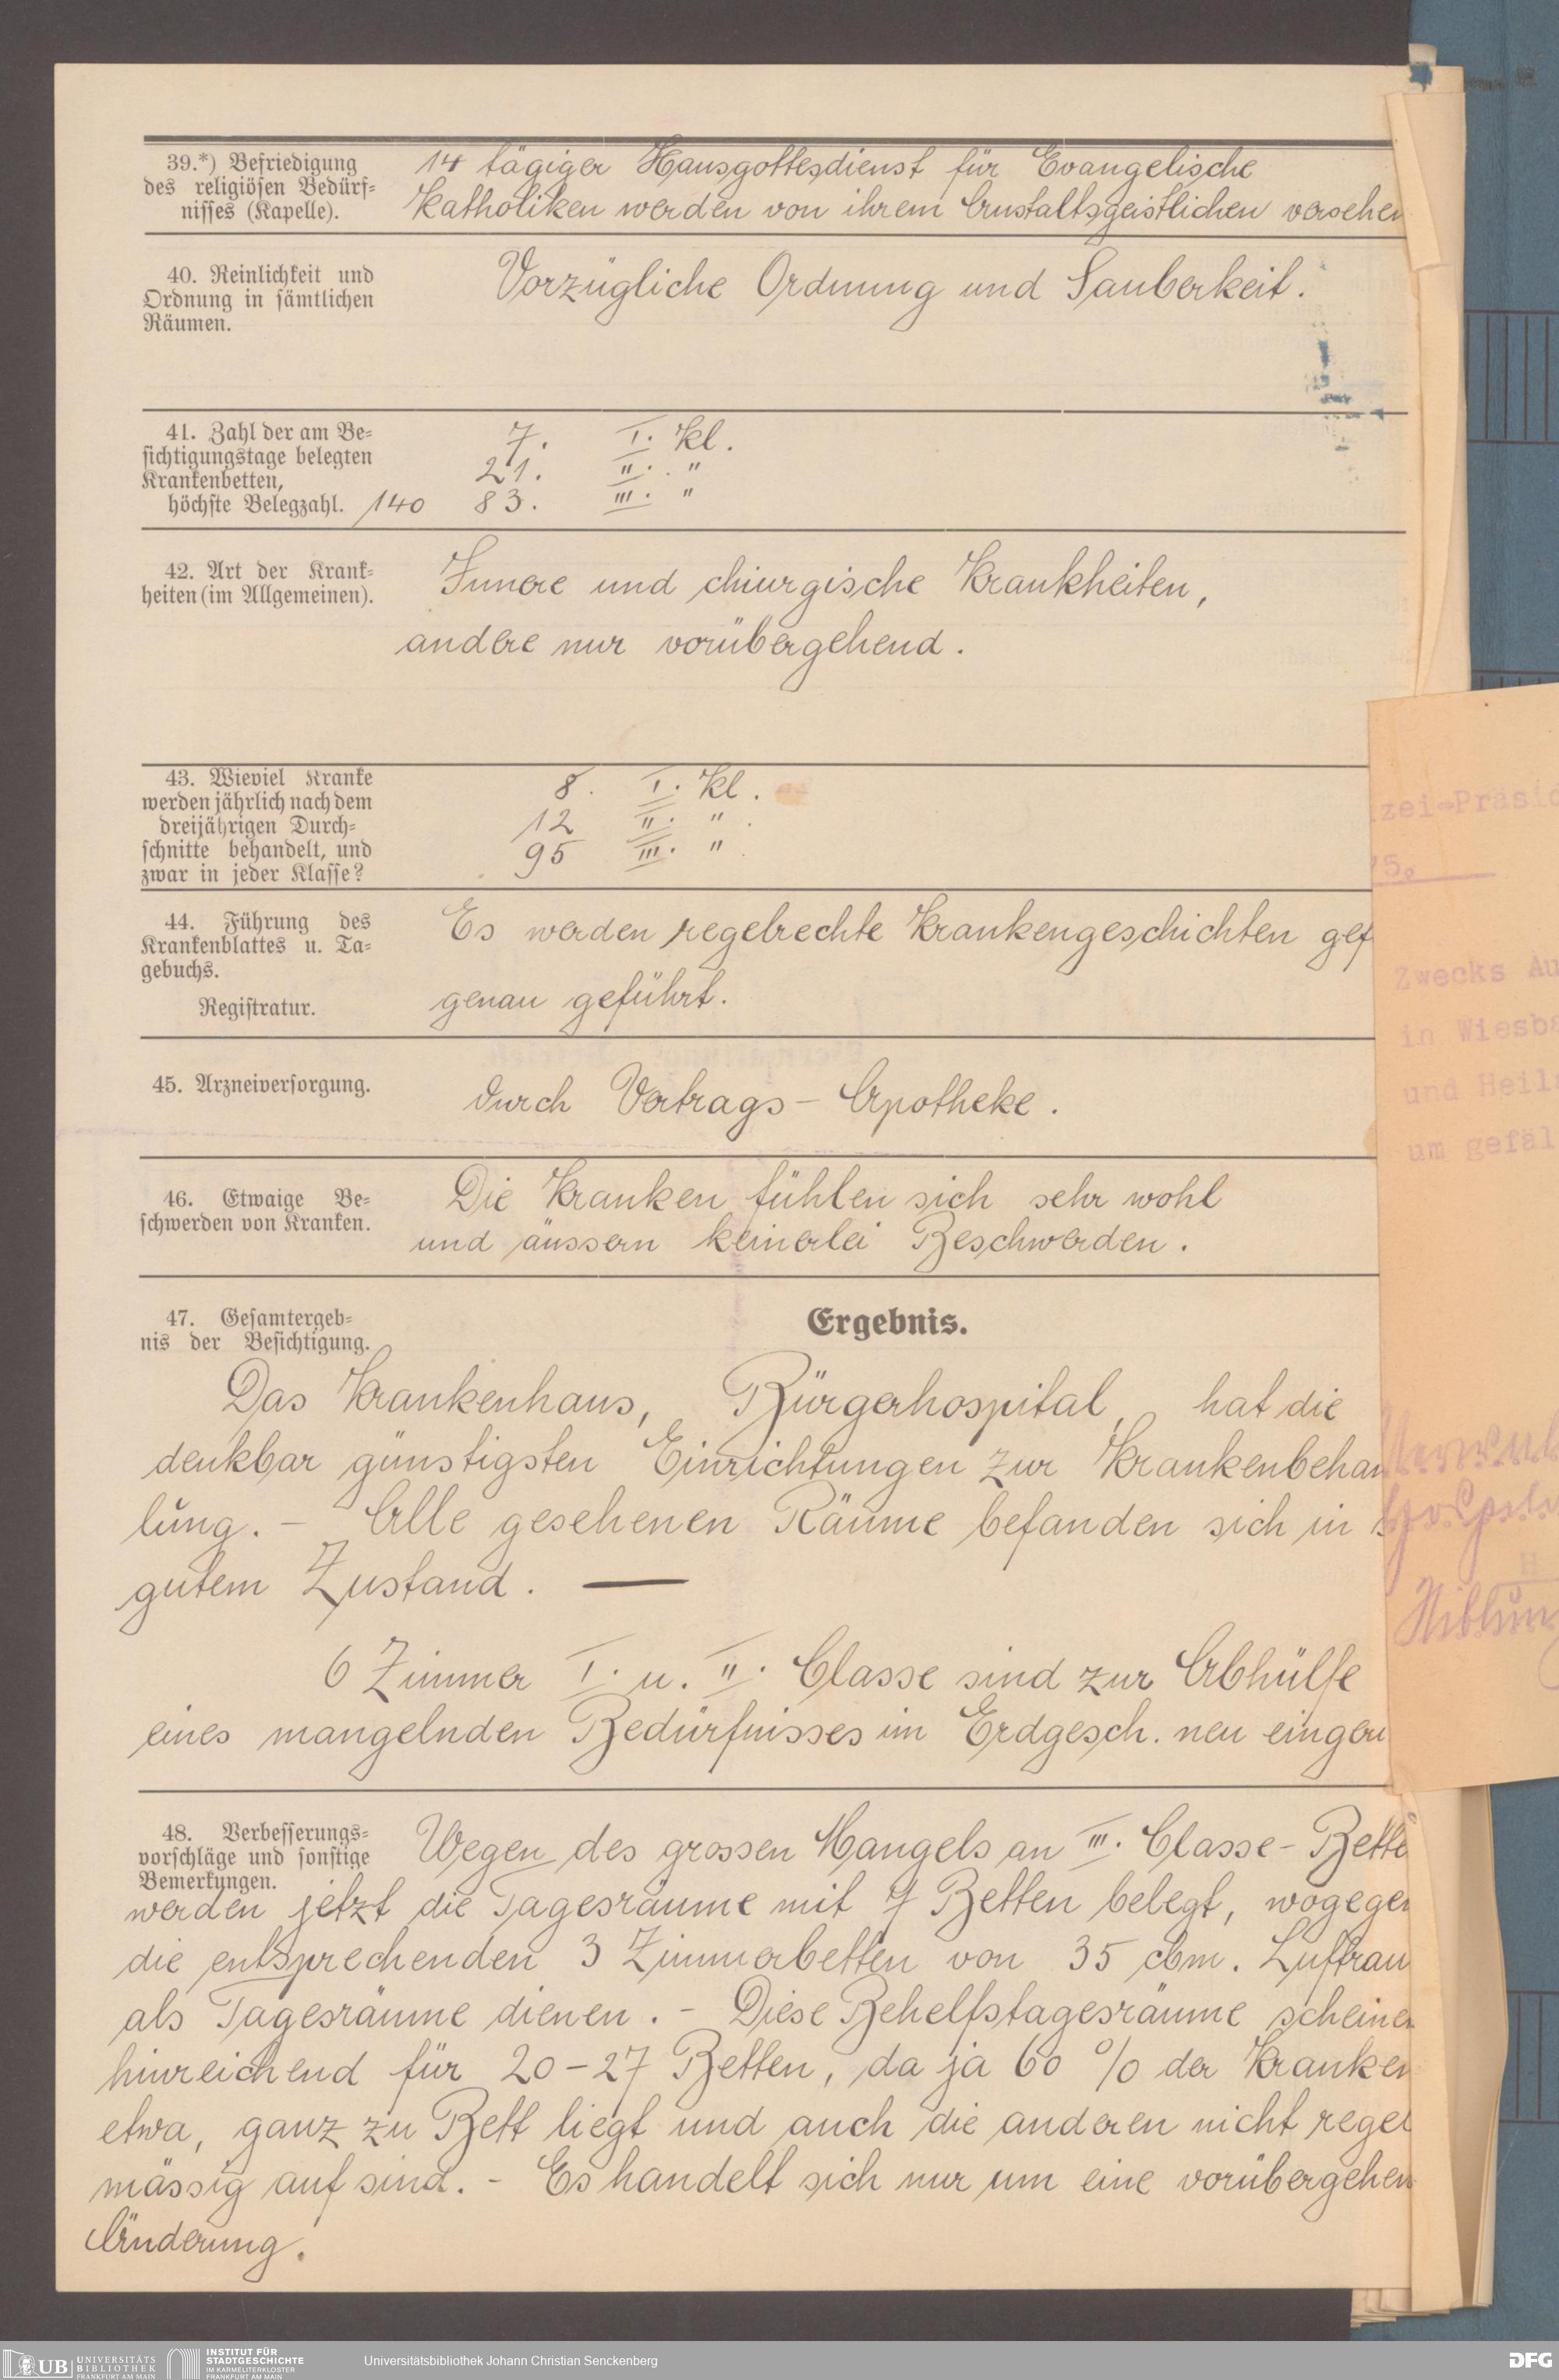 39.*) Befriedigung
des religiösen Bedürf-
nisses (Kapelle).
14 tägiger Hausgottesdienst für Evangelische
Katholiken werden von ihrem Anstaltsgeistlichen versehen
40. Reinlichkeit und
Ordnung in sämtlichen
Räumen.
Vorzügliche Ordnung und Sauberkeit.
41. Zahl der am Be-
sichtigungstage belegten
Krankenbetten,
höchste Belegzahl. 140
7. I. Kl.
21. II. "
83. III. "
42. Art der Krank-
heiten (im Allgemeinen).
Innere und chiurgische Krankheiten,
andere nur vorübergehend.
43. Wieviel Kranke
werden jährlich nach dem
dreijährigen Durch-
schnitte behandelt, und
zwar in jeder Klasse?
8. I. Kl.
12 II. "
95 III. "
44. Führung des
Krankenblattes u. Ta-
gebuchs.
Registratur.
Es werden regelrechte Krankengeschichten gef
genau geführt.
45. Arzneiversorgung.
durch Vertrags-Apotheke.
46. Etwaige Be-
schwerden von Kranken.
Die Kranken fühlen sich sehr wohl
und äussern keinerlei Beschwerden.
47. Gesamtergeb-
nis der Besichtigung.
Ergebnis.
Das Krankenhaus, Bürgerhospital, hat die
denkbar günstigsten Einrichtungen zur Krankenbehan
lung. - Alle gesehenen Räume befanden sich in s
gutem Zustand. —
6 Zimmer I. u. II. Classe sind zur Abhülfe
eines mangelnden Bedürfnisses im Erdgesch. neu einger
48. Verbesserungs-
vorschläge und sonstige
Bemerkungen.
Wegen des grossen Mangels an III. Classe-Bette
werden jetzt die Tagesräume mit 7 Betten belegt, wogegen
die entsprechenden 3 Zimmerbetten von 35 cbm. Luftrau
als Tagesräume dienen. - Diese Behelfstagesräume scheinen
hinreichend für 20-27 Betten, da ja 60 % der Kranken
etwa, ganz zu Bett liegt und auch die anderen nicht regel
mässig auf sind. - Es handelt sich nur um eine vorübergehen
Änderung.
zei-Präsid
75.
Zwecks Au
in Wiesba
und Heil
um gefäl
UB UNIVERSITÄTS
BIBLIOTHEK
FRANKFURT AM MAIN
INSTITUT FÜR
STADTGESCHICHTE
IM KARMELITERKLOSTER
FRANKFURT AM MAIN
Universitätsbibliothek Johann Christian Senckenberg
DFG